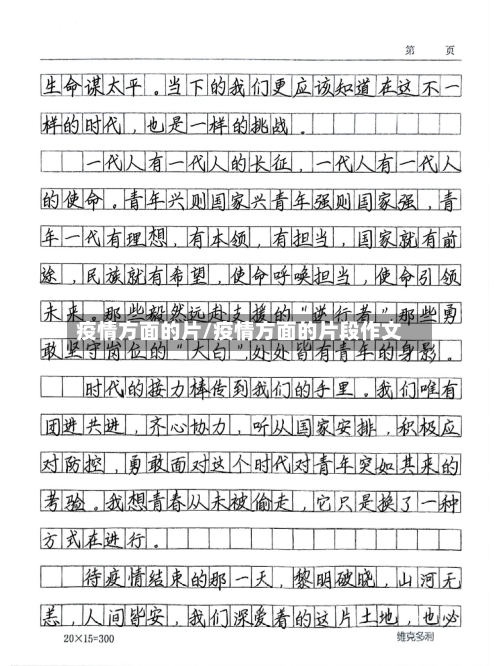 第 页
生命谋太平。当下的我们更应该知道在这不一
样的时代，也是一样的挑战。
一代人有一代人的长征，一代人有一代人
的使命。青年兴则国家兴青年强则国家强，青
年一代有理想，有本领，有担当，国家就有前
途，民族就有希望，使命呼唤担当，使命引领
未来。那些毅然远赴支援的“逆行者”那些勇
疫情方面的片/疫情方面的片段作文
敢坚守岗位的“大白”处处皆有青年的身影。
时代的接力棒传到我们的手里。我们唯有
团进共进，齐心协力，听从国家安排，积极应
对防控，勇敢面对这个时代对青年突如其来的
考验。我想青春从未被偷走，它只是换了一种
方式在进行。
待疫情结束的那一天，黎明破晓，山河无
恙，人间皆安，我们深爱着的这片土地，也必
20×15=300 维克多利